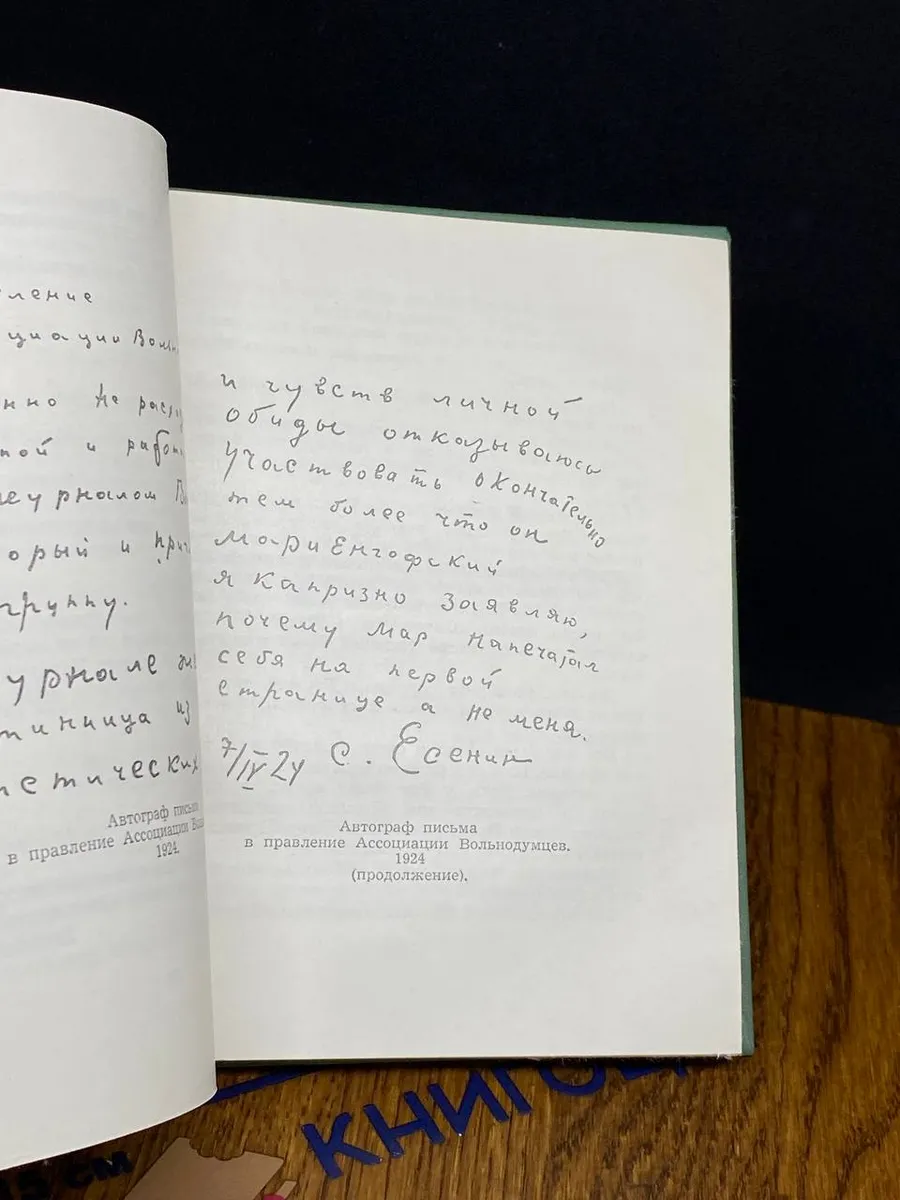 ление
циации Воль
нно не расп
той и работ
журналом
орый и прич
группу.
урнале
тиница из
етических
Автограф письма
в правление Ассоциации
1924.
и чувств личной
обиды отказываюсь
участвовать окончательно
тем более что он
Мариенгофский
я капризно заявляю,
почему Мар напечатал
себя на первой
странице а не меня.
7/IV 24 С. Есенин
Автограф письма
в правление Ассоциации Вольнодумцев.
1924
(продолжение).
КНИГО
см